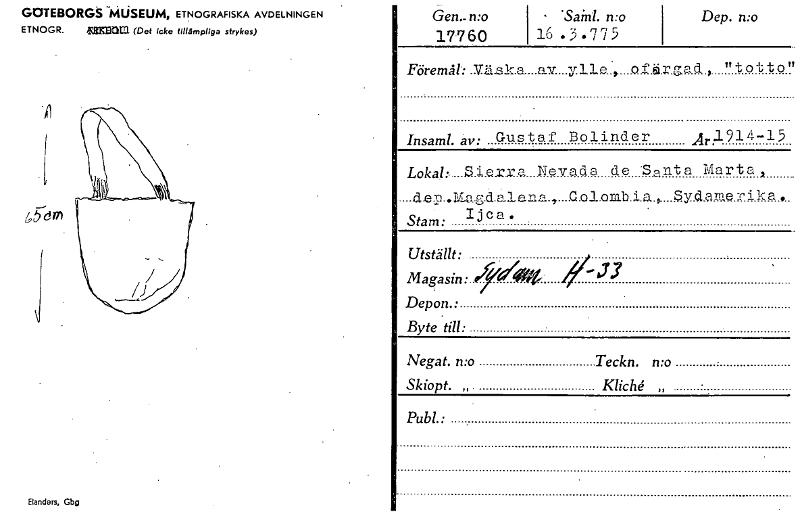 GÖTEBORGS MUSEUM, ETNOGRAFISKA AVDELNINGEN
ETNOGR. ARKEOL. (Det icke tillämpliga strykes)
65 cm
Elanders, Gbg
Gen. n:o Saml. n:o Dep. n:o
17760 16.3.775
Föremål: Väska av ylle, ofärgad, "totto"
Insaml. av: Gustaf Bolinder År. 1914-15
Lokal: Sierra Nevada de Santa Marta,
dep.Magdalena, Colombia, Sydamerika.
Stam: Ijca.
Utställt:
Magasin: Sydam H-33
Depon.:
Byte till:
Negat. n:o Teckn. n:o
Skiopt. „ Kliché „
Publ.: